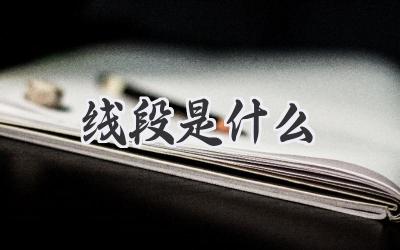 线段是什么